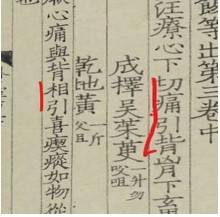 等出第三卷中
療心下切痛引背胷下
成擇吳茱萸一升勿㕮咀
乾地黃一斤父且
心痛與背相引喜瘈瘲如物從